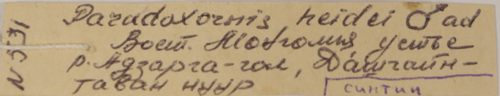 Paradoxornis heidei ♂ ad
Вост. Монголия устье
р. Адзарга-гол, Дашгайн-
таван нуур
синтип
N 531